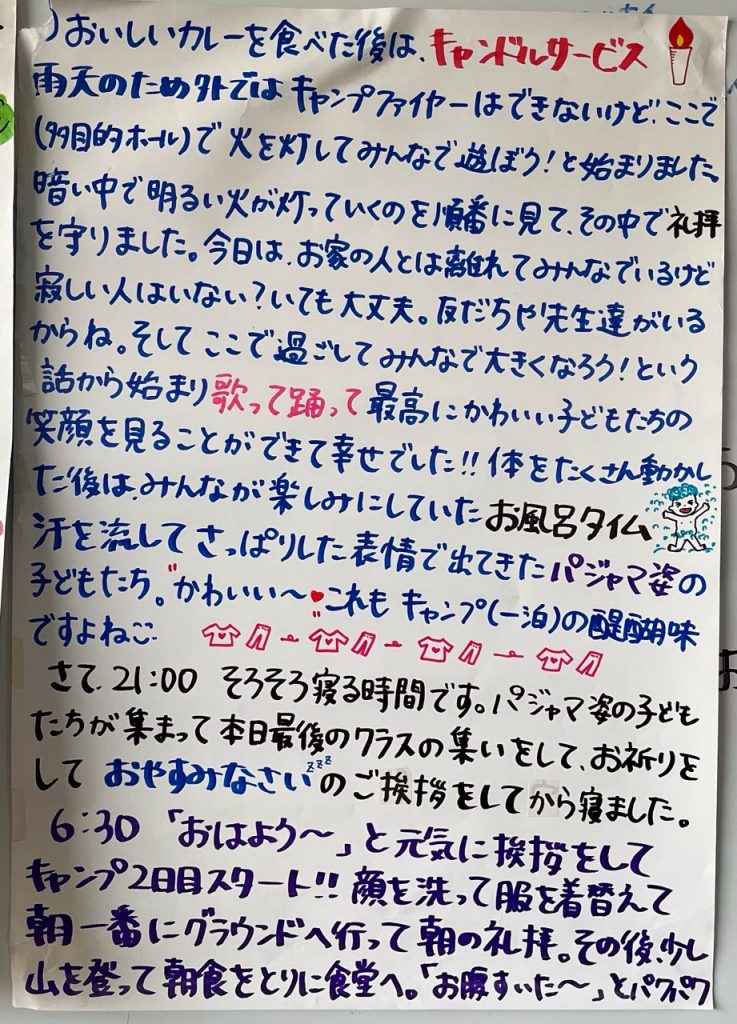 ）おいしいカレーを食べた後は、キャンドルサービス
雨天のため外ではキャンプファイヤーはできないけど、ここで
（多目的ホール）で火を灯してみんなで遊ぼう！と始まりました。
暗い中で明るい火が灯っていくのを順番に見て、その中で礼拝
を守りました。今日は、お家の人とは離れてみんなでいるけど
寂しい人はいない？いても大丈夫。友だちや先生達がいる
からね。そしてここで過ごしてみんなで大きくなろう！という
話から始まり歌って踊って最高にかわいい子どもたちの
笑顔を見ることができて幸せでした!! 体をたくさん動かし
た後は、みんなが楽しみにしていたお風呂タイム
汗を流してさっぱりした表情で出てきたパジャマ姿の
子どもたち。"かわいい〜♥"これもキャンプ(一泊)の醍醐味
ですよね
さて、21:00 そろそろ寝る時間です。パジャマ姿の子ども
たちが集まって本日最後のクラスの集いをして、お祈りを
して おやすみなさいzzzのご挨拶をしてから寝ました。
6:30 「おはよう〜」と元気に挨拶をして
キャンプ2日目スタート!! 顔を洗って服を着替えて
朝一番にグラウンドへ行って朝の礼拝。その後、少し
山を登って朝食をとりに食堂へ。「お腹すいた〜」とパクパク